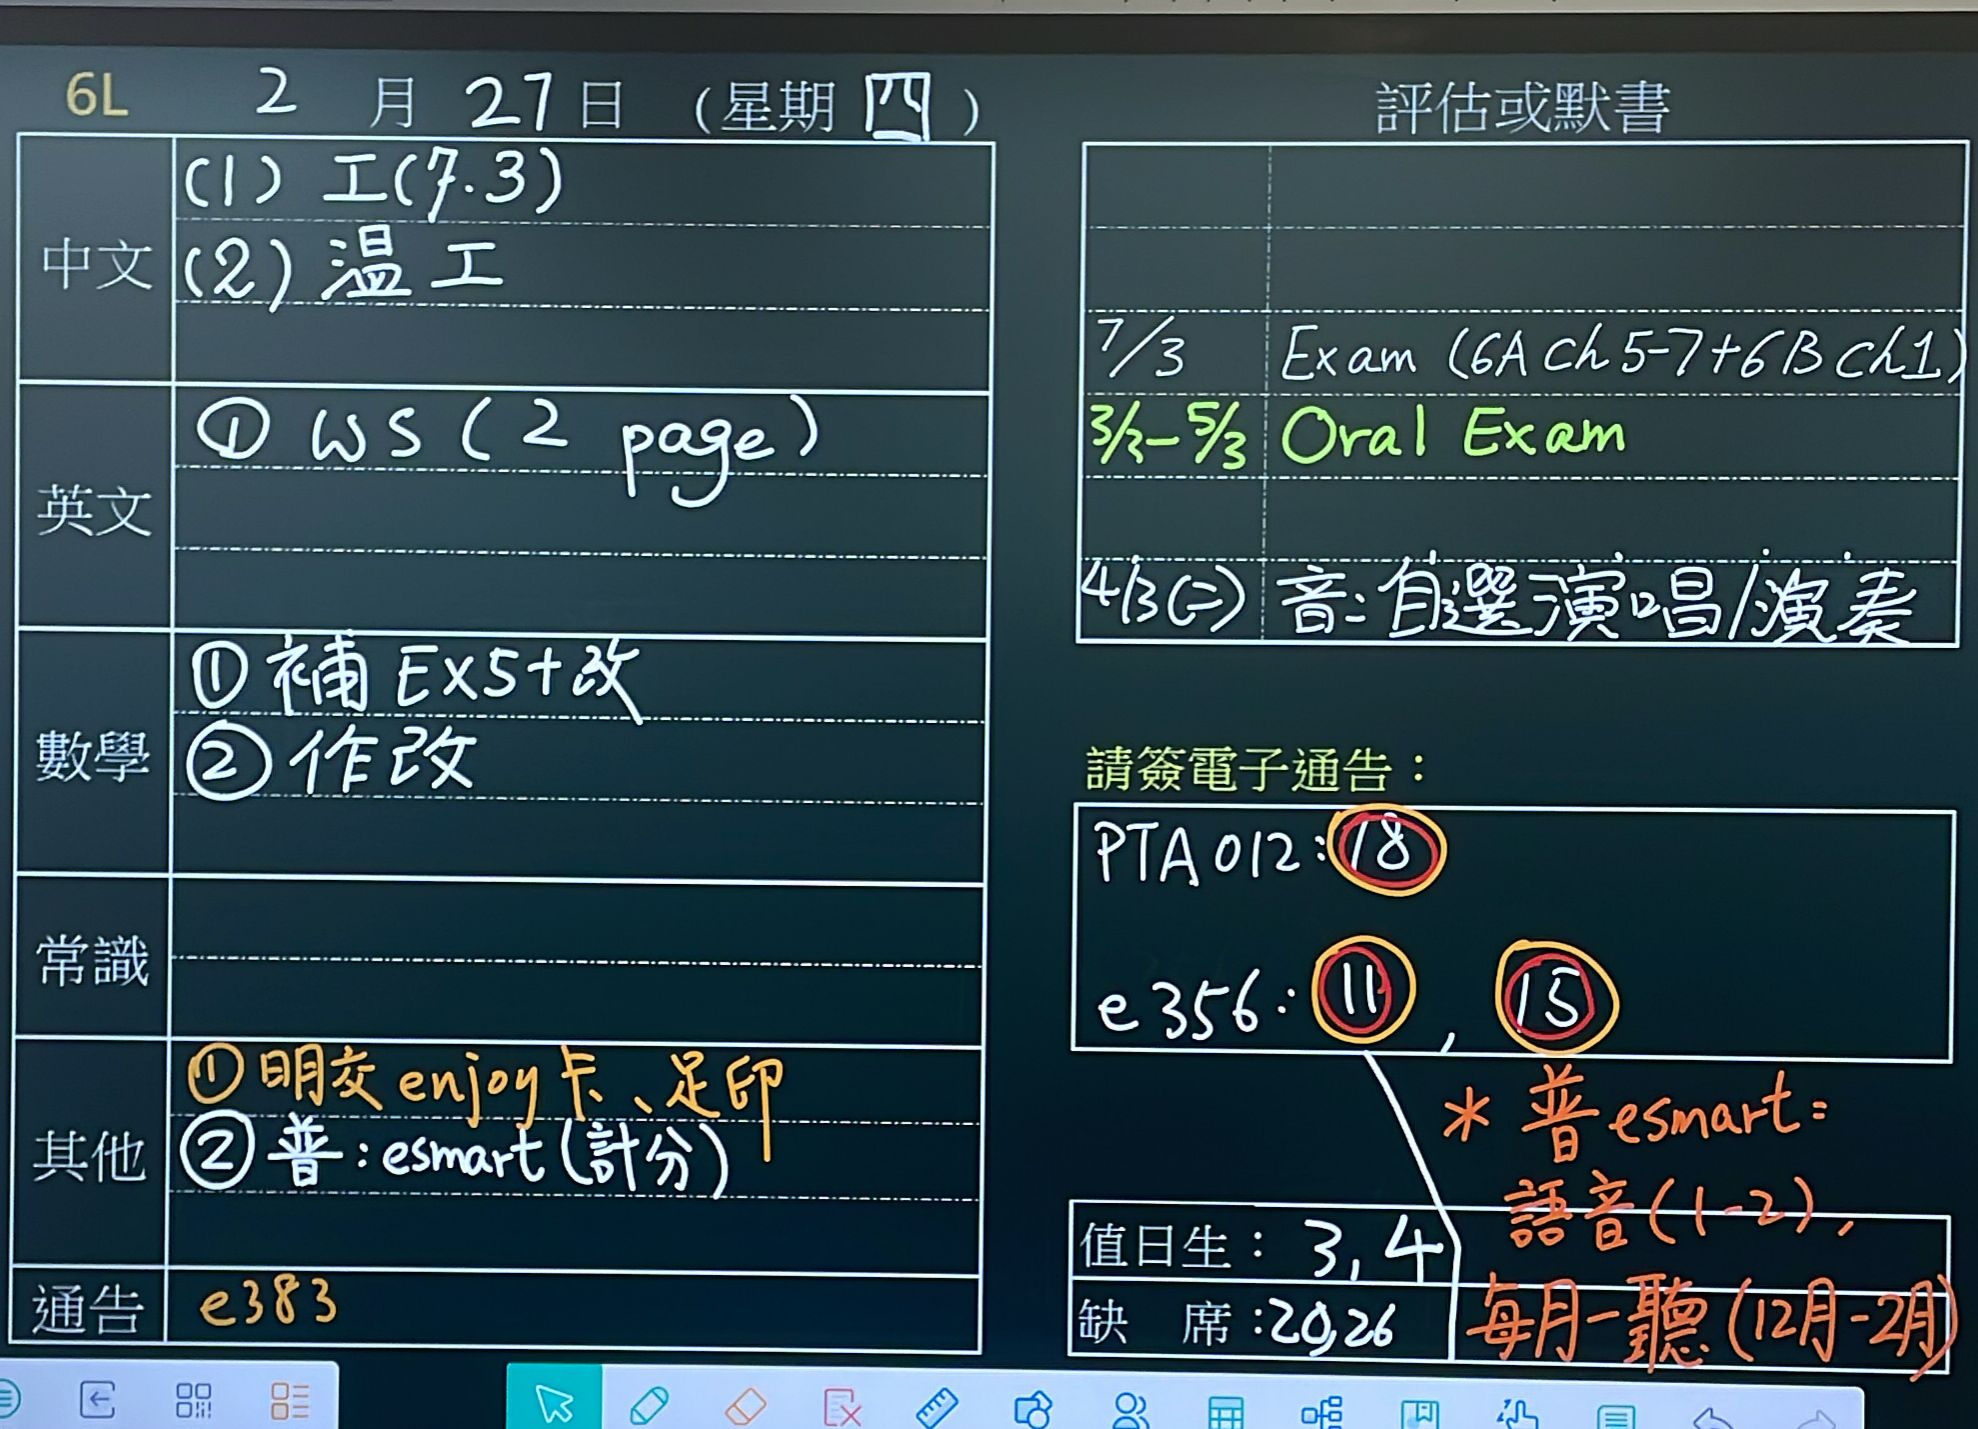 6L 2 月 27 日 (星期 四)
中文
(1) 工(7.3)
(2) 温工
英文
① WS (2 page)
數學
① 補 EX5+改
② 作改
常識
其他
① 明交 enjoy 卡、足印
② 普:esmart(計分)
通告
e383
評估或默書
7/3 Exam (6A Ch 5-7+6B Ch1)
3/3-5/3 Oral Exam
4/3(二) 音:自選演唱/演奏
請簽電子通告：
PTA 012:18
e356:11, 15
* 普 esmart:
語音(1-2),
每月一聽(12月-2月)
值日生：3, 4
缺 席：20,26